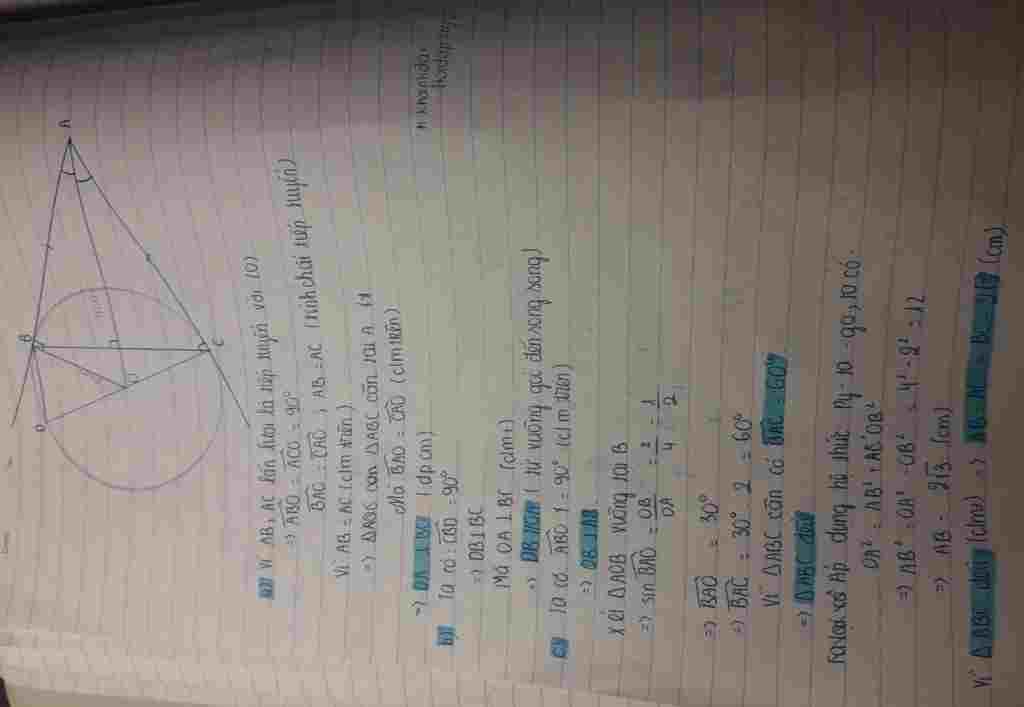 A
B
C
D
O
a) Vì AB, AC lần lượt là tiếp tuyến với (O)
=> ABO = ACO = 90°
BAO = CAO, AB = AC (tính chất tiếp tuyến)
Vì AB = AC (clm trên)
=> ΔABC cân tại A
Mà BAO = CAO (clm trên)
=> OA ⊥ BC (đpcm)
b) Ta có: CBD = 90°
=> DB ⊥ BC
Mà OA ⊥ BC (clmt)
=> DB // OA (từ vuông góc đến song song)
c) Ta có ABO = 90° (clm trên)
=> OB ⊥ AB
Xét ΔAOB vuông tại B
=> sin BAO = OB/OA = 2/4 = 1/2
=> BAO = 30°
=> BAC = 30°. 2 = 60°
Vì ΔABC cân có BAC = 60°
=> ΔABC đều
Áp dụng hệ thức Py-ta-go, ta có:
OA² = AB² + OB²
=> AB² = OA² - OB² = 4² - 2² = 12
=> AB = 2√3 (cm)
Vì ΔABC đều (clmt) => AB = AC = BC = 2√3 (cm)